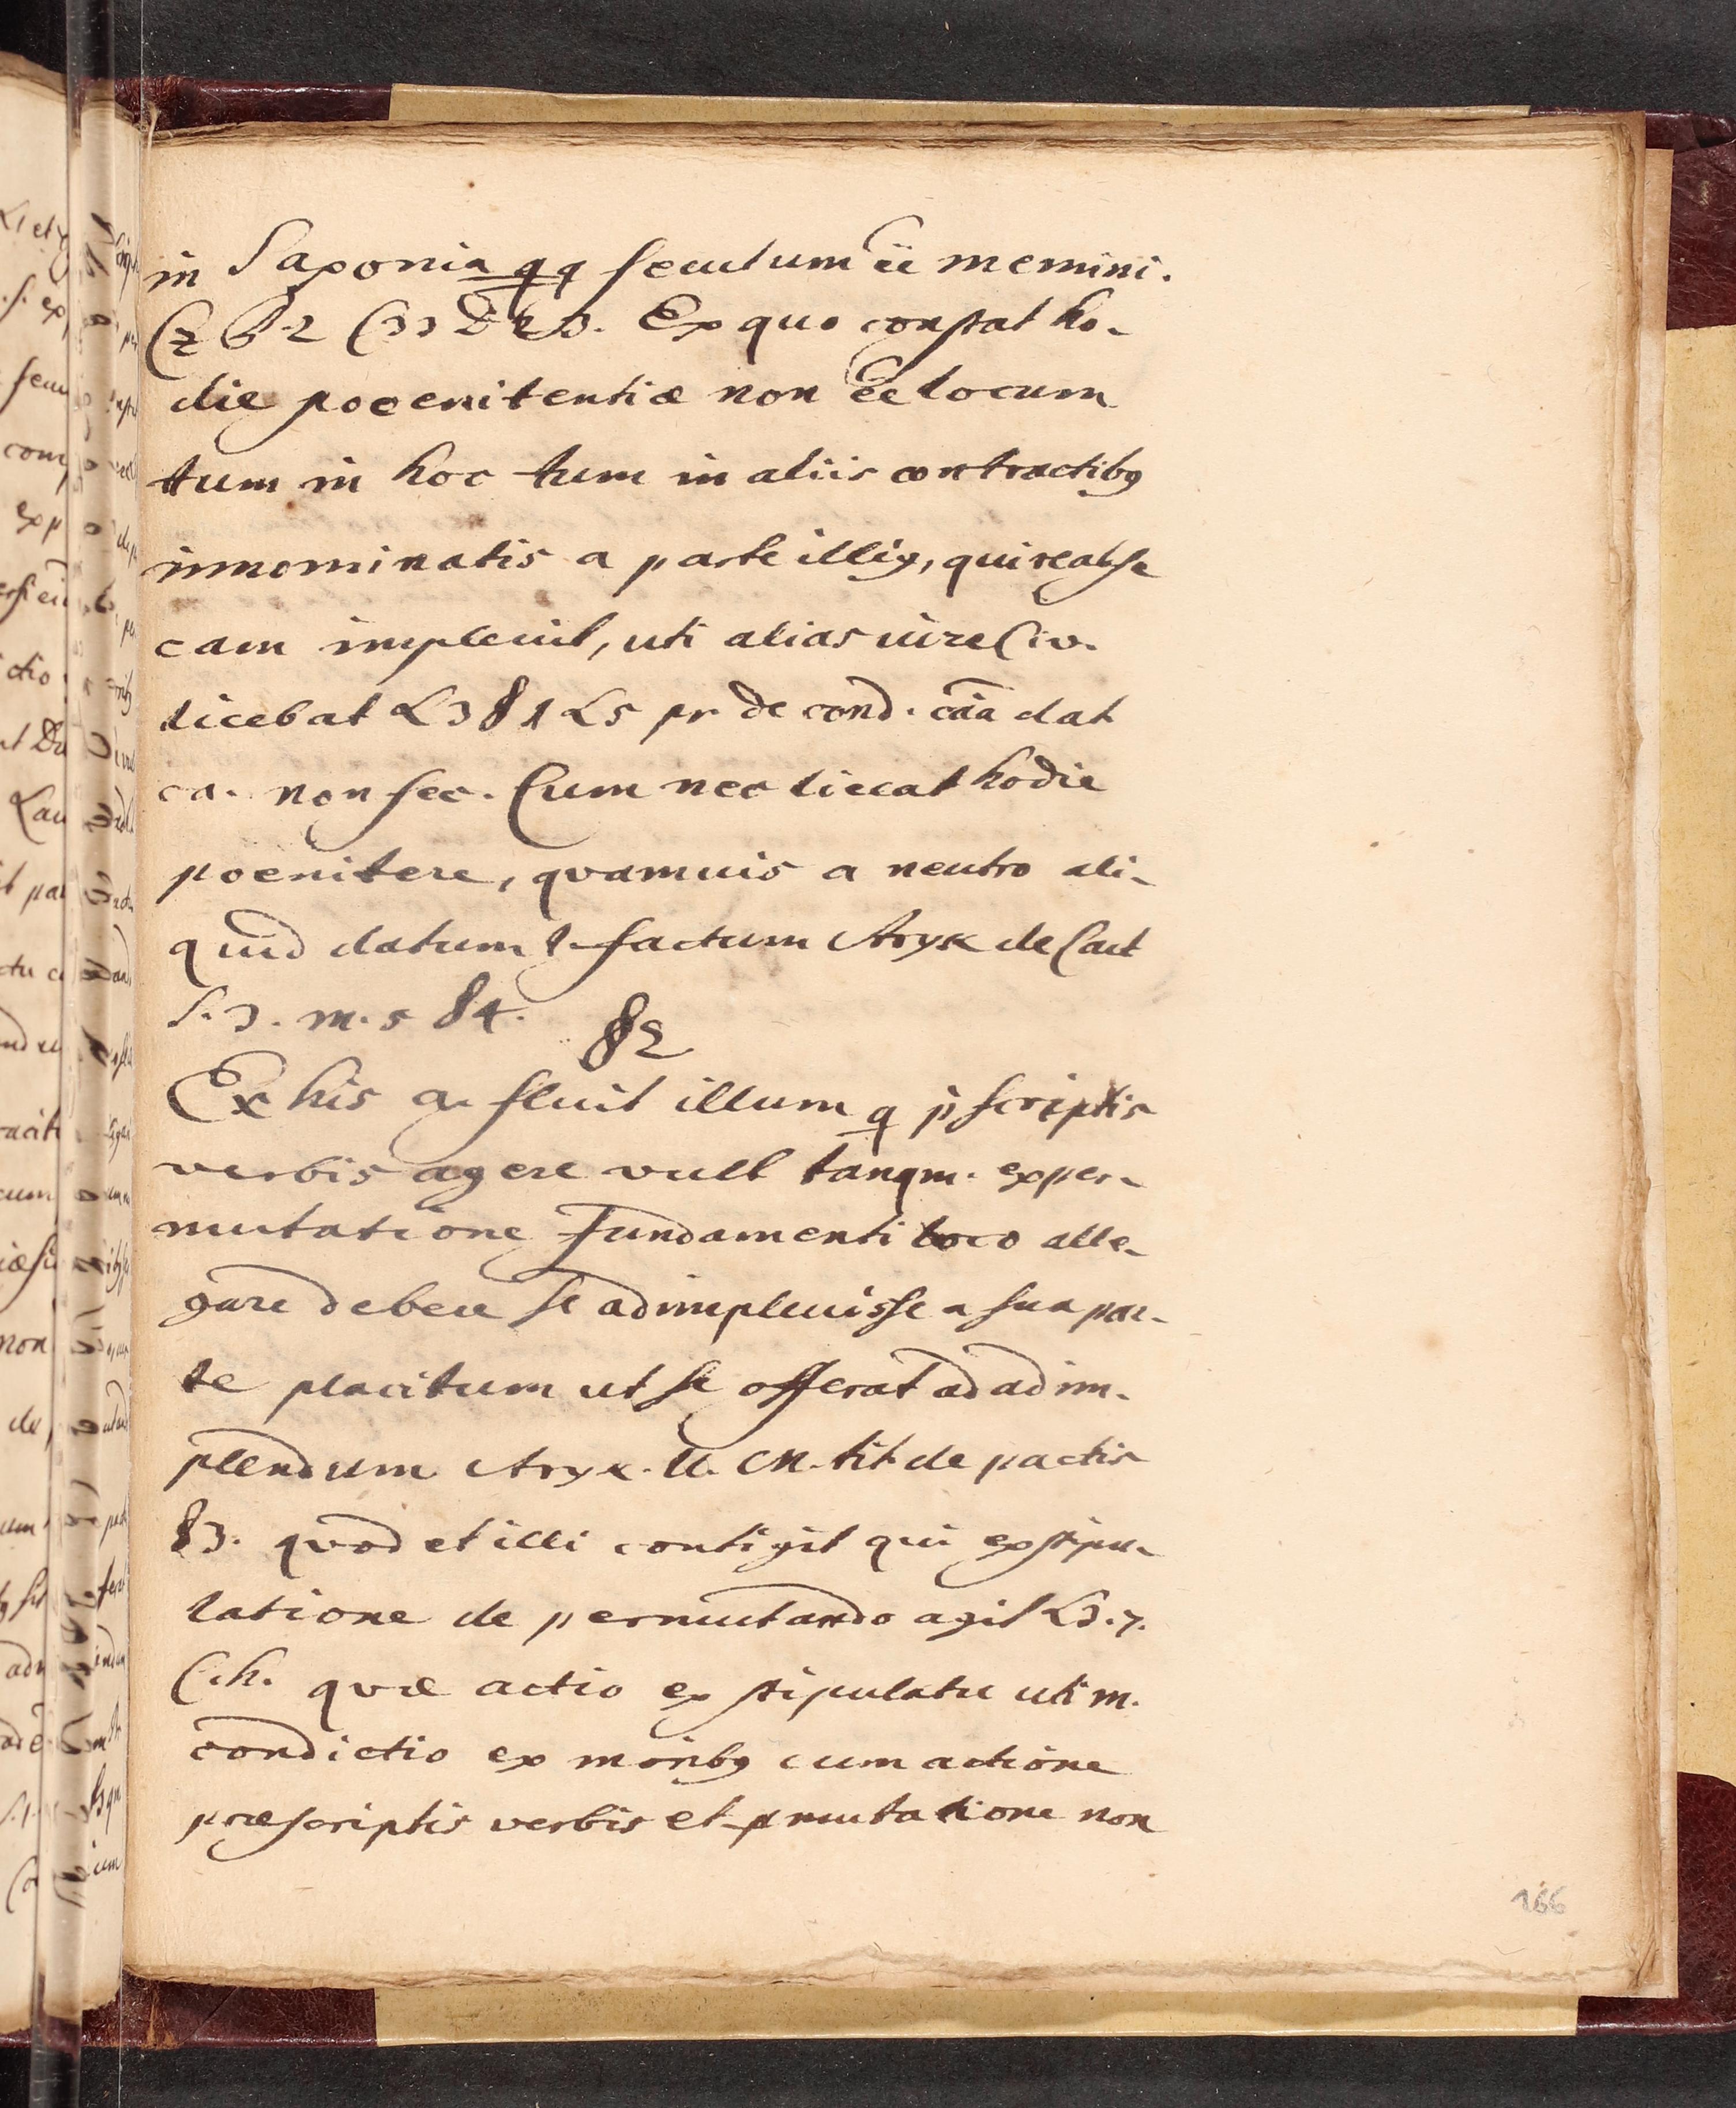 in Saxonia qq secutum ee memini.
C2 P. 2 C 33 D 23. Ex quo constat ho-
die poeenitentiæ non ee locum
tum in hoc tum in aliis contractibg
innominatis a parte illig, qui reabse
eam impleuit, uti alias iure Civ.
licebat L3 §1 L5 pr de cond. cāā dat
ca. non sec. Cum nec liceat hodie
poenitere, qvamuis a neutro ali-
quid datum l. factum Stryk de Caut
S. 3. m. 5 § 4.
§ 2
Ex his a. fluit illum q pscriptis
verbis agere vult tanqm. ex per-
mutatione fundamenti loco alle-
gare debere se adimpleuisse a sua par-
te placitum ut se offerat ad adim-
plendum Stryk. U. M. tit de pactis
§3. qvod et illi contigit qui ex stipu-
latione de permutando agit L3. 7.
C. h. qvæ actio ex stipulatu uti m.
condictio ex moribg cum actione
præscriptis verbis et pmutatione non
166